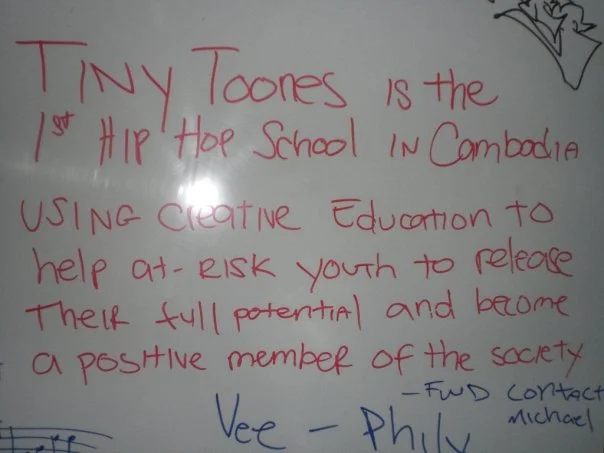 TINY TOONES IS the
1st HIP HOP School IN Cambodia
USING Creative Education to
help at-RISK youth to release
Their full potential and become
a positive member of the society
- FWD CONTACT
Michael
Vee - Phily